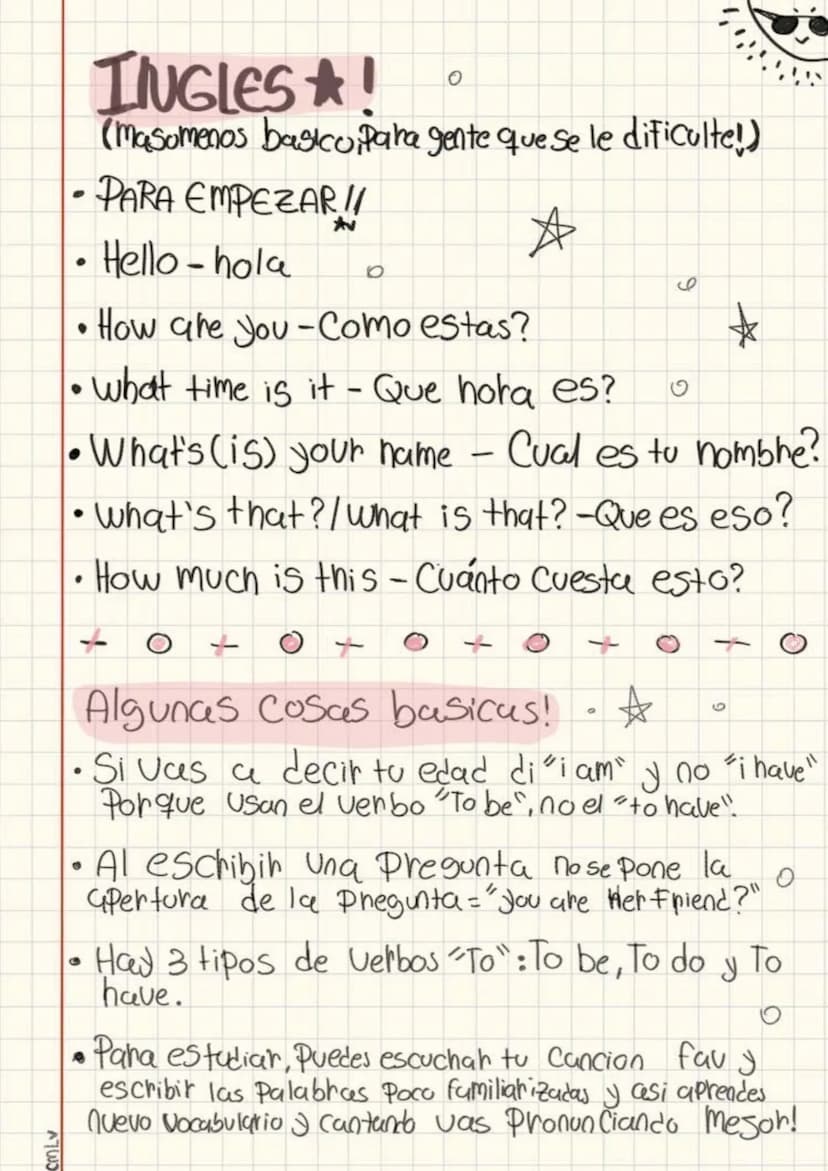 INGLES★!
(masomenos basico,Para gente que se le dificulte!)
• PARA EMPEZAR!!
• Hello - hola
• How are you - Como estas?
• What time is it - Que hora es?
• What's(is) your name - Cual es tu nombre?
• What's that?/What is that? - Que es eso?
• How much is this - Cuánto cuesta esto?
Algunas cosas basicas!
• Si vas a decir tu edad di "i am" y no "i have"
Porque usan el verbo "To be", no el "to have".
• Al escribir una Pregunta no se pone la
apertura de la pregunta = "you are Her Friend?"
• Hay 3 tipos de verbos "To": To be, To do y To
have.
• Para estudiar, Puedes escuchar tu Cancion fav y
escribir las Palabras Poco familiarizadas y asi aprendes
nuevo vocabulario y cantando vas Pronunciando Mejor!
cmLv